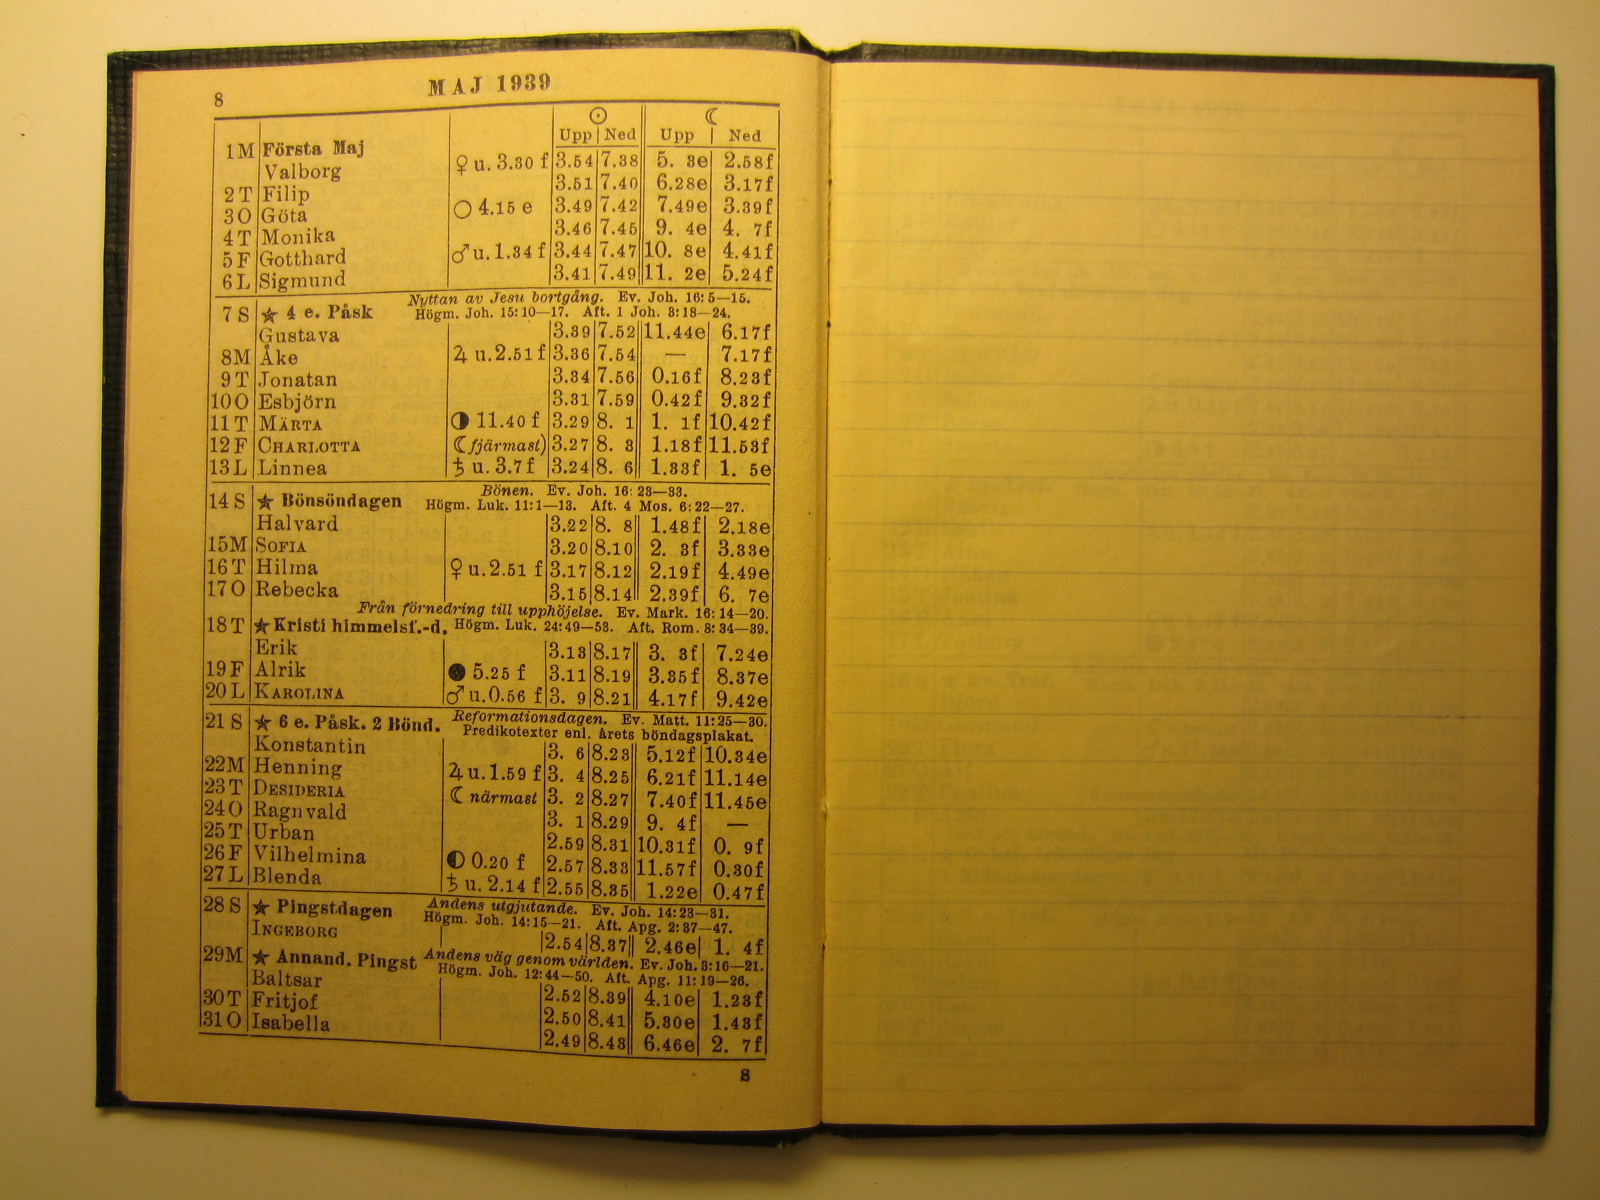 8
MAJ 1939
☉ ☾
Upp Ned Upp Ned
1 M Första Maj
Valborg ♀ u. 3.30 f 3.54 7.38 5. 3e 2.58f
2 T Filip 3.51 7.40 6.28e 3.17f
3 O Göta ○ 4.15 e 3.49 7.42 7.49e 3.39f
4 T Monika 3.46 7.45 9. 4e 4. 7f
5 F Gotthard ♂ u. 1.34 f 3.44 7.47 10. 8e 4.41f
6 L Sigmund 3.41 7.49 11. 2e 5.24f
7 S ★ 4 e. Påsk Nyttan av Jesu bortgång. Ev. Joh. 16: 5—15.
Högm. Joh. 15: 10—17. Aft. 1 Joh. 3: 18—24.
Gustava 3.39 7.52 11.44e 6.17f
8 M Åke ♃ u. 2.51 f 3.36 7.54 — 7.17f
9 T Jonatan 3.34 7.56 0.16f 8.23f
10 O Esbjörn 3.31 7.59 0.42f 9.32f
11 T MÄRTA ◑ 11.40 f 3.29 8. 1 1. 1f 10.42f
12 F CHARLOTTA ☾ fjärmast) 3.27 8. 3 1.18f 11.53f
13 L Linnea ♄ u. 3.7 f 3.24 8. 6 1.33f 1. 5e
14 S ★ Bönsöndagen Bönen. Ev. Joh. 16: 23—33.
Högm. Luk. 11: 1—13. Aft. 4 Mos. 6: 22—27.
Halvard 3.22 8. 8 1.48f 2.18e
15 M SOFIA 3.20 8.10 2. 3f 3.33e
16 T Hilma ♀ u. 2.51 f 3.17 8.12 2.19f 4.49e
17 O Rebecka 3.15 8.14 2.39f 6. 7e
Från förnedring till upphöjelse. Ev. Mark. 16: 14—20.
18 T ★ Kristi himmelsf.-d. Högm. Luk. 24: 49—53. Aft. Rom. 8: 34—39.
Erik 3.13 8.17 3. 3f 7.24e
19 F Alrik ● 5.25 f 3.11 8.19 3.35f 8.37e
20 L KAROLINA ♂ u. 0.56 f 3. 9 8.21 4.17f 9.42e
21 S ★ 6 e. Påsk. 2 Bönd. Reformationsdagen. Ev. Matt. 11: 25—30.
Predikotexter enl. årets böndagsplakat.
Konstantin 3. 6 8.23 5.12f 10.34e
22 M Henning ♃ u. 1.59 f 3. 4 8.25 6.21f 11.14e
23 T DESIDERIA ☾ närmast 3. 2 8.27 7.40f 11.45e
24 O Ragnvald 3. 1 8.29 9. 4f —
25 T Urban 2.59 8.31 10.31f 0. 9f
26 F Vilhelmina ◐ 0.20 f 2.57 8.33 11.57f 0.30f
27 L Blenda ♄ u. 2.14 f 2.55 8.35 1.22e 0.47f
28 S ★ Pingstdagen Andens utgjutande. Ev. Joh. 14: 23—31.
Högm. Joh. 14: 15—21. Aft. Apg. 2: 37—47.
INGEBORG 2.54 8.37 2.46e 1. 4f
29 M ★ Annand. Pingst Andens väg genom världen. Ev. Joh. 3: 16—21.
Högm. Joh. 12: 44—50. Aft. Apg. 11: 19—26.
Baltsar 2.52 8.39 4.10e 1.23f
30 T Fritjof 2.50 8.41 5.30e 1.43f
31 O Isabella 2.49 8.43 6.46e 2. 7f
8